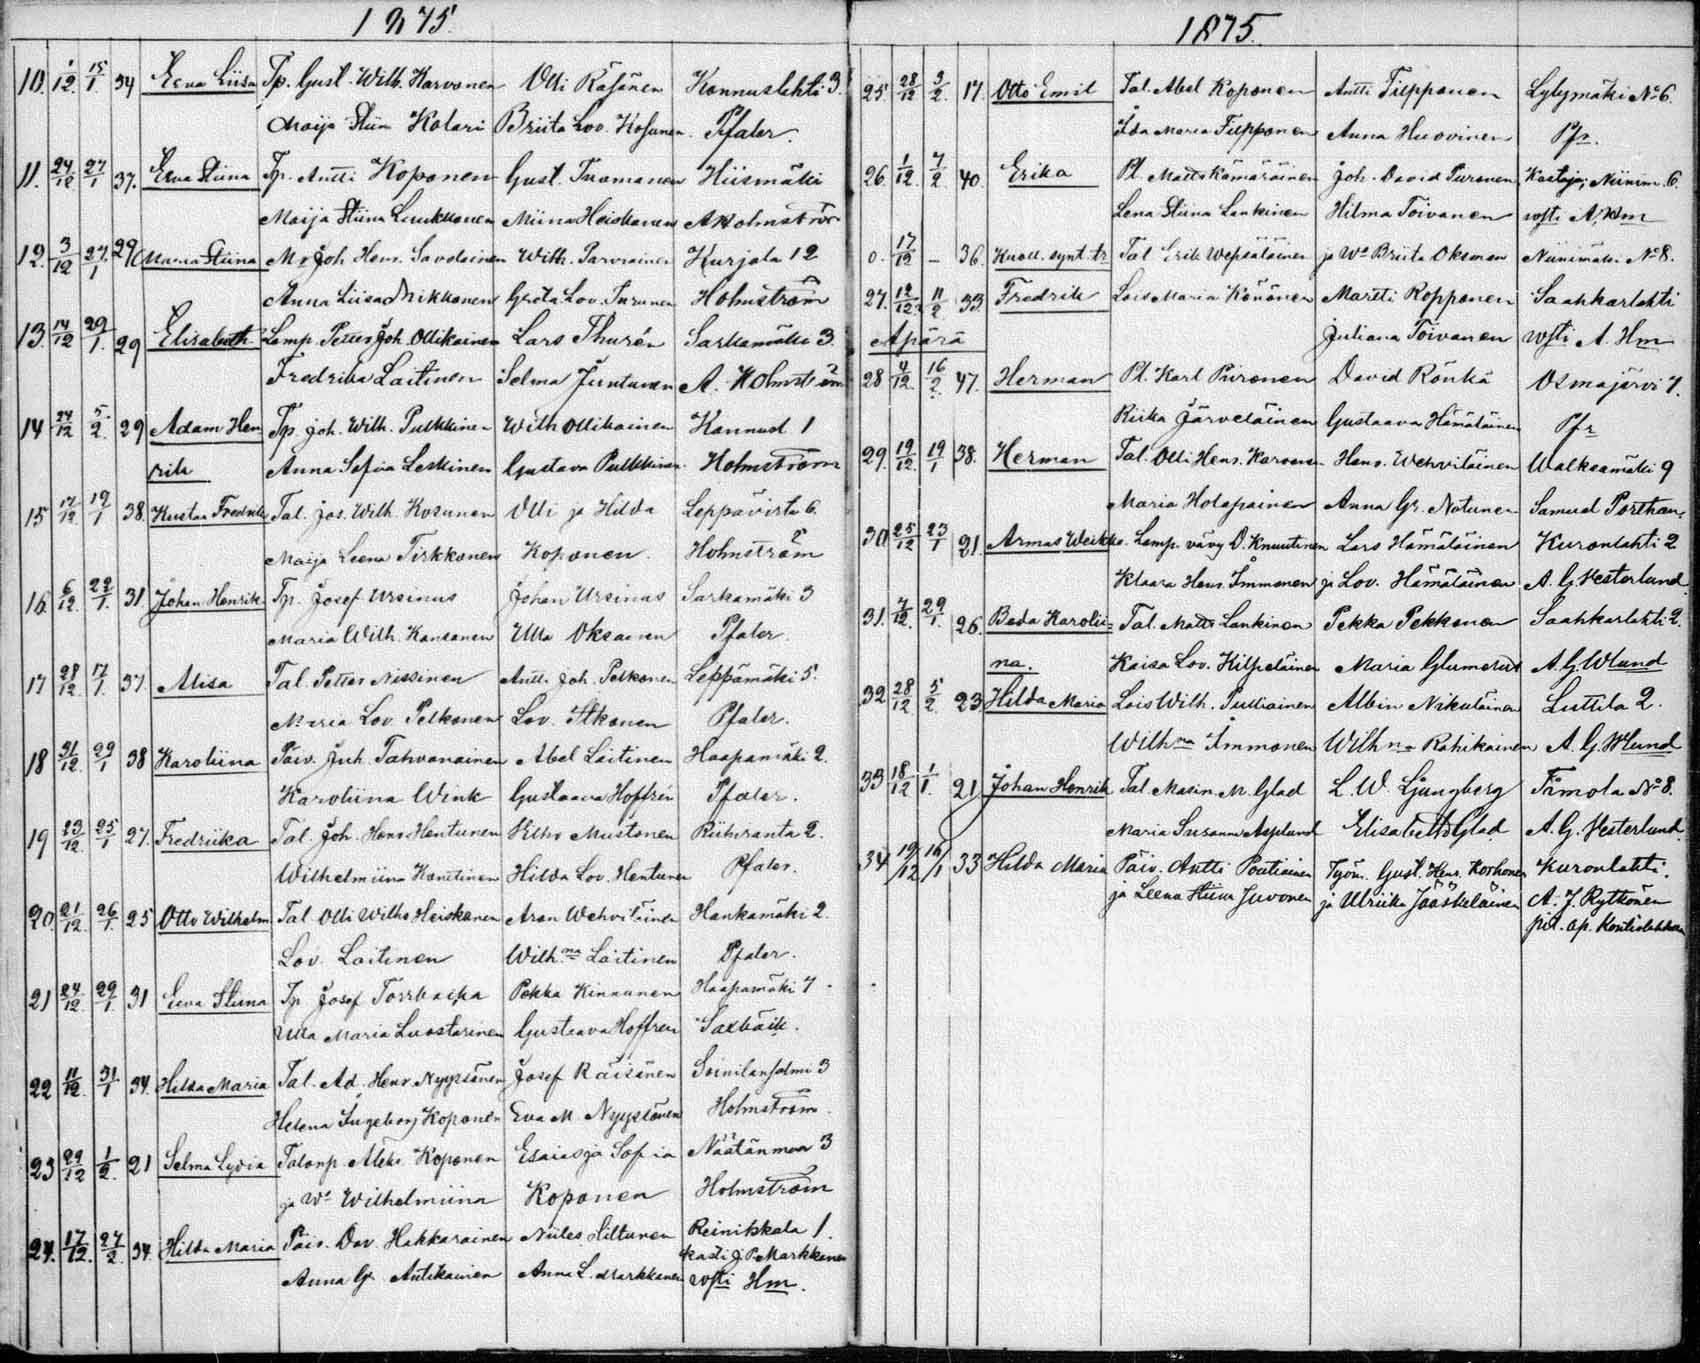 1875.
10. 1/12. 15/1. 34 Eeva Liisa Tp. Gust. Wilh. Karvonen Olli Räsänen Konnuslahti 3.
Maija Stiin Kolari Briita Lov. Kosunen Pfaler.
11. 24/12 27/1 37. Eeva Stiina Tp. Antti Koponen Gust. Tuomanen Hiismäki
Maija Stiina Luukkonen Miina Heiskanen A Holmström
12. 3/12 27/1 29 Maria Stiina M. Joh. Henr. Savolainen Wilh. Parviainen Kurjala 12
Anna Liisa Mikkonen Greta Lov. Turunen Holmström
13. 14/12 29/1. 29 Elisabeth Lamp. Petter Joh. Ollikainen Lars Thurén Sarkamäki 3.
Fredrika Laitinen Selma Juntunen A. Holmström
14 24/12 5/2. 29 Adam Hen Tp. Joh. Wilh. Pulkkinen Wilh Ollikainen Konnus 1
rik Anna Sofia Leskinen Gustava Pulkkinen Holmström
15 17/12 19/1 38. Kustaa Fredrik Tal. Jos. Wilh. Kosunen Olli ja Hilda Leppävirta 6.
Maija Leena Tirkkonen Koponen. Holmström
16. 6/12. 22/1. 31. Johan Henrik Tp. Josef Ursinus Johan Ursinus Sarkamäki 3
Maria Wilh. Kansanen Ulla Oksanen Pfaler.
17 28/12. 17/1. 37 Alisa Tal. Petter Nissinen Antti Joh. Pelkonen Leppämäki 5.
Maria Lov Pelkonen Lov. Itkonen Pfaler.
18 31/12. 29/1 38 Karoliina Päiv. Juh. Tahvanainen Abel Laitinen Haapamäki 2.
Karoliina Wink Gustaava Hoffrén Pfaler.
19 23/12. 25/1 27. Fredriika Tal. Joh. Henr. Hentunen Mustonen Riihiranta 2.
Wilhelmiina Hilda Lov. Hentunen Pfaler.
20. 21/12. 26/1. 25 Otto Wilhelm Tal. Olli Wilh. Heiskanen Aron Wehviläinen Hankamäki 2.
Lov. Laitinen Wilh:na Laitinen Pfaler.
21 24/12. 29/1. 31 Eeva Stiina Tp Josef Torsbacka Pekka Kinnunen Haapamäki 7.
Ulla Maria Luostarinen Gustaava Hoffren Saxbäck.
22 11/12. 31/1 34. Hilda Maria Tal. Ad. Henr. Nyyssönen Josef Räisänen Soinilansalmi 3
Helena Ingeborg Koponen Eva M. Nyyssönen Holmström.
23 29/12 1/2. 21 Selma Lydia Talonp. Aleks. Koponen Esaias ja Sofia Näätänmaa 3
ja Wo Wilhelmiina Koponen Holmström
24. 17/12. 27/2. 34. Hilda Maria Päiv. Dav. Hakkarainen Niiles Siltunen Reinikkala 1.
kasti J. P. Markkanen
Anna Gr. Antikainen Anna L. Markkanen wsti Hm.
1875.
25. 28/12 3/2. 17. Otto Emil Tal. Abel Koponen Antti Filpponen Lylymäki No 6.
Ida Maria Filpponen Anna Huovinen Pfr.
26. 1/12. 7/2 40. Erika Pl. Matts Kämäräinen Joh. David Puronen Niinim. 6.
Lena Stiina Lankinen Hilma Toivanen wsti A. Hm
0. 17/12 – 36. Kuoll. synt. tr Tal Erik Wepsäläinen ja Wo Briita Oksman Niinimäki No 8.
27. 12/12. 11/2 33. Fredrik Lois Maria Könönen Martti Ropponen Saahkarlahti
Apärä Juliana Toivanen wsti A. Hm
28 4/12. 16/2. 47. Herman Pl. Karl Puronen David Rönkä Osmajärvi 7.
Riika Järveläinen Gustaava Hämäläinen Pfr
29. 19/12. 19/1 38. Herman Tal. Olli Henr. Karvonen Henr. Wehviläinen Walkeamäki 9
Maria Holopainen Anna Gr. Notunen Samuel Porthan.
30 25/12 23/1 21. Armas Weikko. Lamp. vävy D. Knuutinen Lars Hämäläinen Kuronlahti 2
Klaara Henr. Immonen ja Lov. Hämäläinen A. G. Vesterlund
31. 7/12. 29/1. 26. Beda Karolii= Tal. Matts Lankinen Pekka Pekkonen Saahkarlahti 2.
na. Kaisa Lov. Kilpeläinen Maria Glumerus A. G. Wlund
32 28/12 5/2. 23 Hilda Maria Lois Wilh. Putkiainen Albin Nikuläinen Luttila 2.
Wilhna Immonen Wilhna Rahikainen A. G. Wlund
33 18/12 1/1. 21 Johan Henrik Tal. Masin. M. Glad L. W. Ljungberg Timola No 8.
Maria Susanna Asplund Elisabeth Glad A. G. Vesterlund
34 19/12 16/1 33 Hilda Maria Päiv. Antti Poutiainen Työm. Gust. Henr. Korhonen Kuronlahti.
ja Leena Stiina Juvonen ja Ulriika Jääskeläinen A. J. Rytkönen
pit. ap. Kontiolahdessa